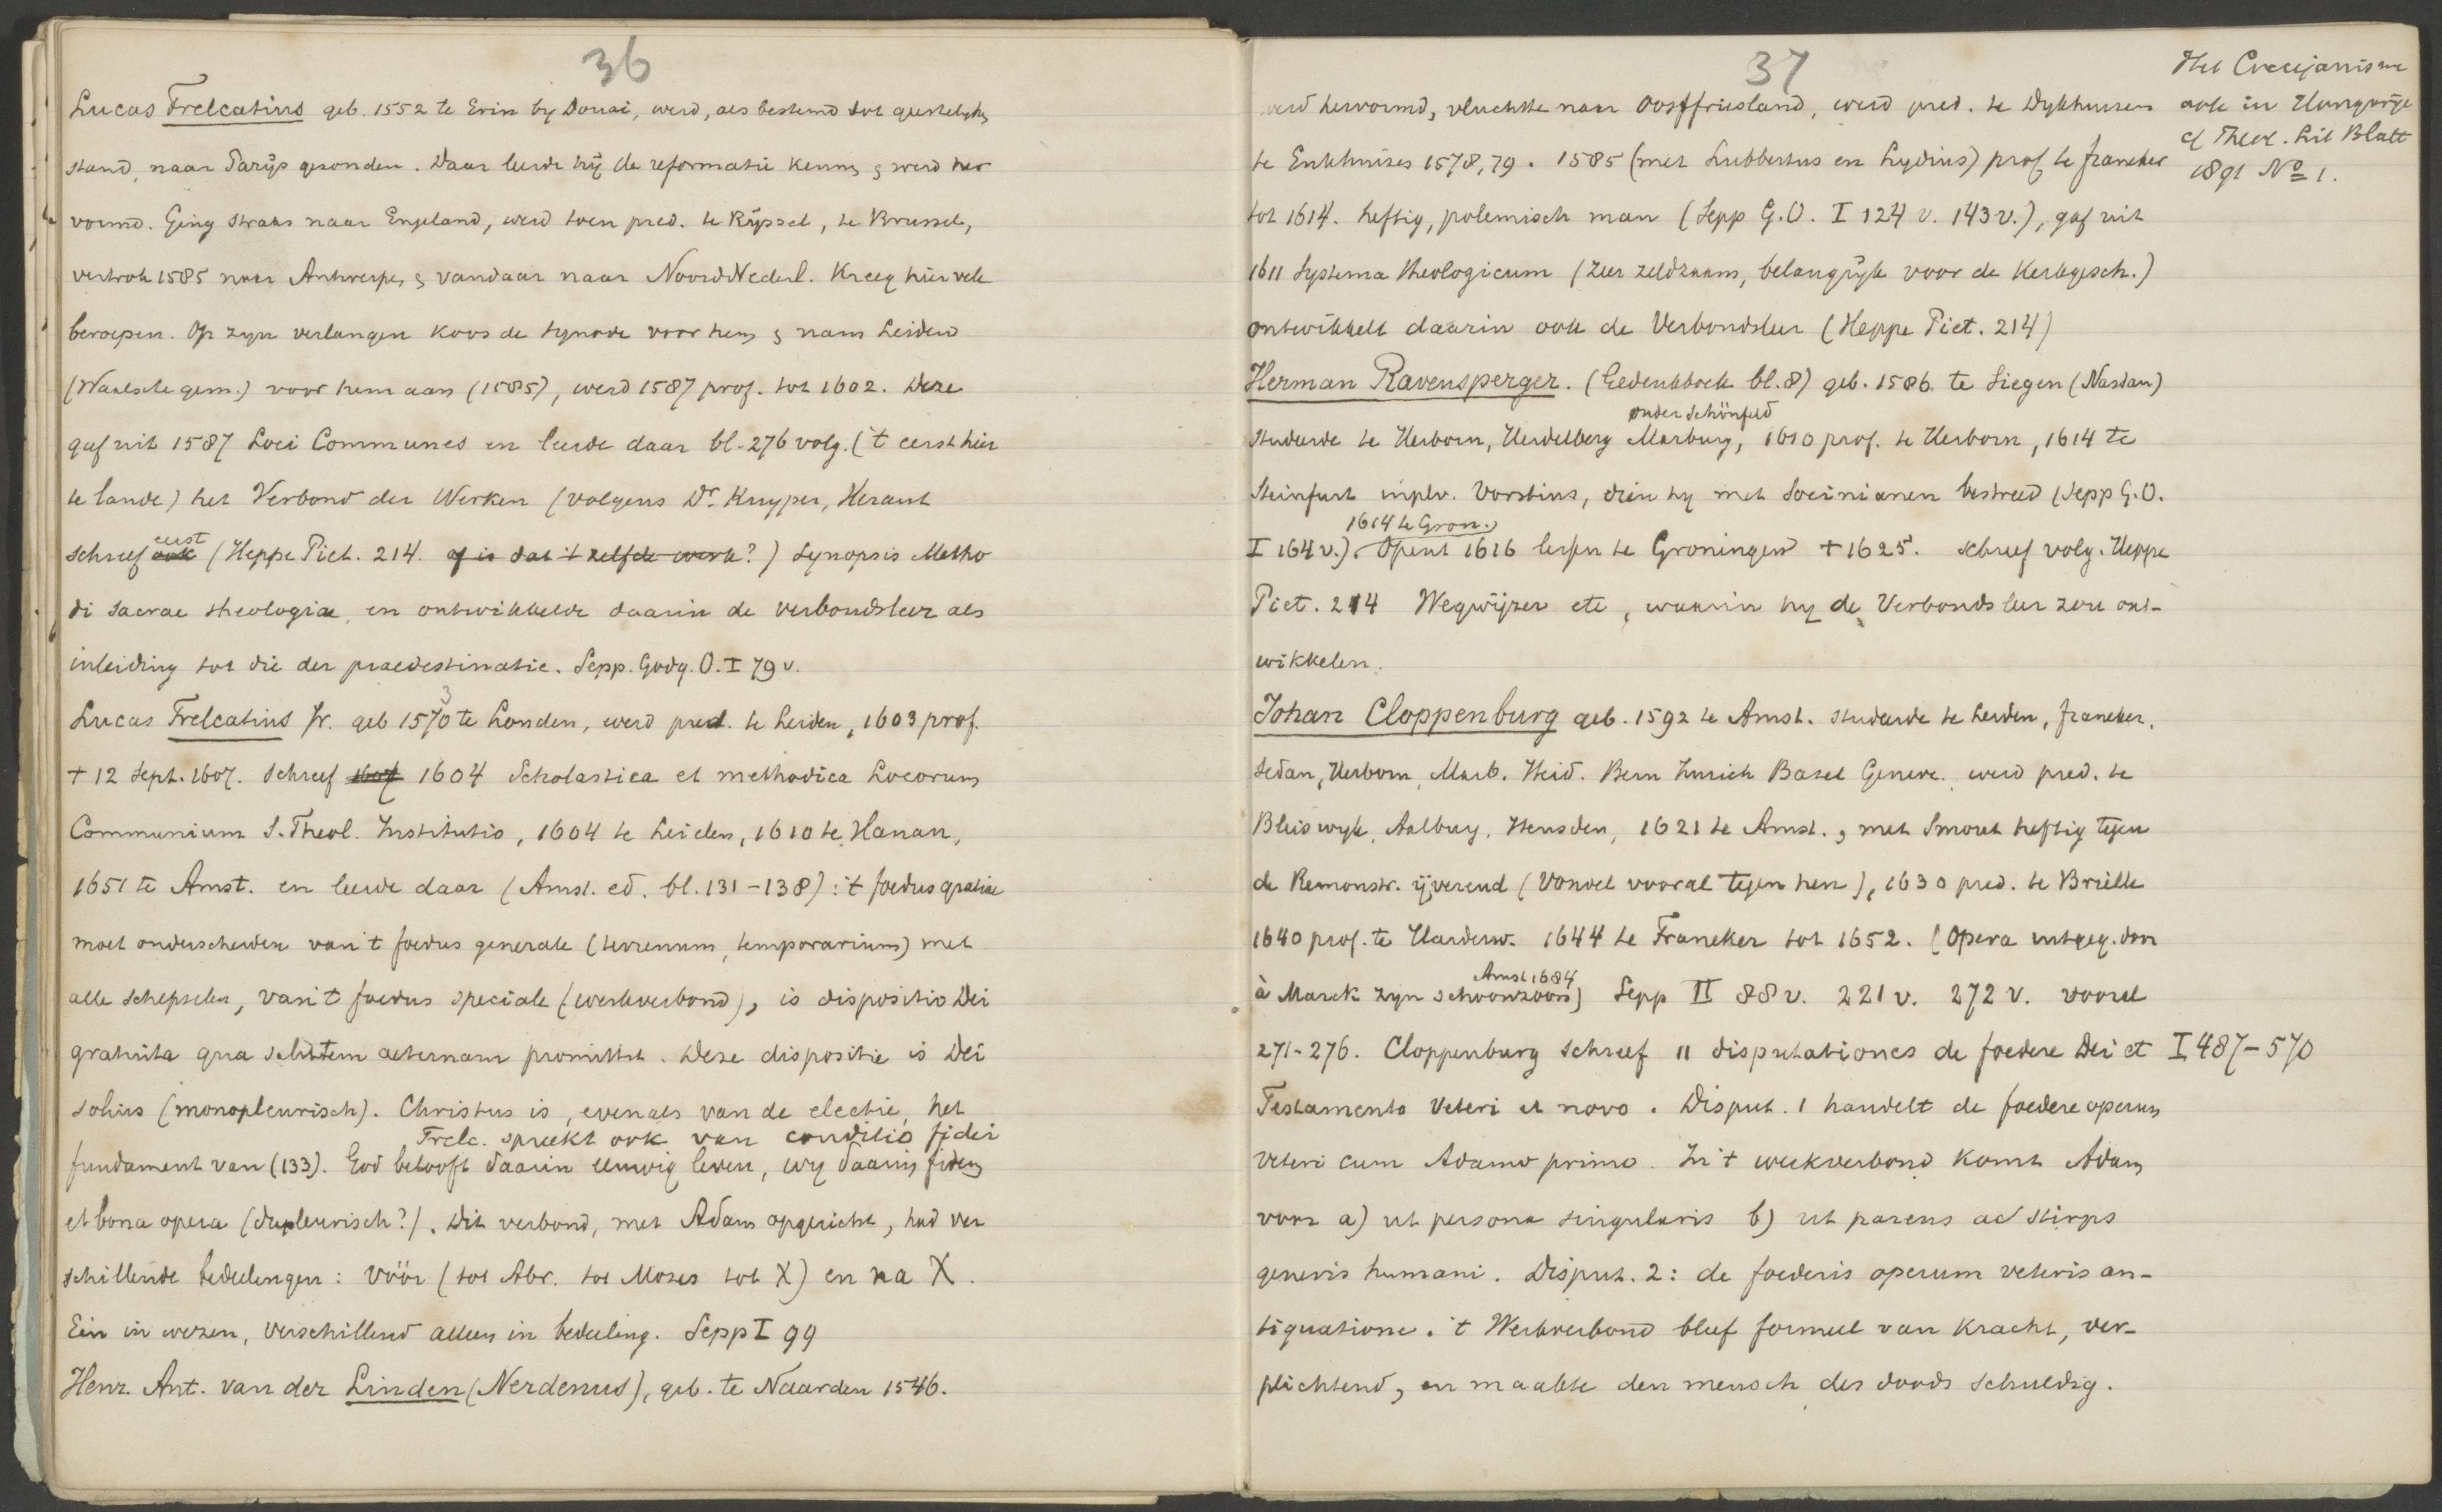 36
Lucas Trelcatius geb. 1552 te Erin by Douai, werd, als bestemd tot geestelyken
stand, naar Parijs gezonden. Daar leerde hij de reformatie kennen & werd her
vormd. Ging straks naar Engeland, werd toen pred. te Rijssel, te Brussel,
vertrok 1585 naar Antwerpen & vandaar naar NoordNederl. Kreeg hier vele
beroepen. Op zyn verlangen koos de synode voor hem & nam Leiden
(Waalsche gem.) voor hem aan (1585), werd 1587 prof. tot 1602. Deze
gaf uit 1587 Loci Communes en leerde daar bl. 276 volg. ('t eerst hier
te lande) het Verbond der Werken (volgens Dr. Kuyper, Heraut
eerst
schreef ook (Heppe Piet. 214. of is dat 't zelfde werk?) Synopsis Metho
di sacrae theologiae, en ontwikkelde daarin de verbondsleer als
inleiding tot die der praedestinatie. Sepp. Godg. O. I 79 v.
3
Lucas Trelcatius Jr. geb 1570 te Londen, werd pred. te Leiden, 1603 prof.
+ 12 Sept. 1607. Schreef 1607 1604 Scholastica et methodica Locorum
Communium S. Theol. Institutio, 1604 te Leiden, 1610 te Hanau,
1651 te Amst. en leerde daar (Amst. ed. bl. 131-138): 't foedus gratiae
moet onderscheiden van 't foedus generale (terrenum, temporarium) met
alle schepselen, van 't foedus speciale (werkverbond), is dispositio Dei
gratuita qua salutem aeternam promittit. Deze dispositie is Dei
solius (monopleurisch). Christus is, evenals van de electie, het
Trelc. spreekt ook van conditio fidei
fundament van (133). God belooft daarin eeuwig leven, wy daarin fidem
et bona opera (dupleurisch?). Dit verbond, met Adam opgericht, had ver
schillende bedeelingen: vóór (tot Abr. tot Mozes tot X) en na X.
Eén in wezen, verschillend alleen in bedeeling. Sepp I 99
Henr. Ant. van der Linden (Nerdenus), geb. te Naarden 1546.
37
werd hervormd, vluchtte naar Oostfriesland, werd pred. te Dykhuizen
te Enkhuizen 1578, 79. 1585 (met Lubbertus en Lydius) prof. te Franeker
tot 1614. heftig, polemisch man (Sepp G.O. I 124 v. 143 v.), gaf uit
1611 Systema theologicum (zeer zeldzaam, belangrijk voor de Kerkgesch.)
ontwikkelt daarin ook de Verbondsleer (Heppe Piet. 214)
Herman Ravensperger. (Gedenkboek bl. 8) geb. 1586 te Siegen (Nassau)
onder Schönfeld
studeerde te Herborn, Heidelberg Marburg, 1610 prof. te Herborn, 1614 te
Steinfurt in plv. Vorstius, dien hy met Socinianen bestreed (Sepp G.O.
1614 te Gron.
I 164 v.). Opent 1616 lessen te Groningen + 1625. schreef volg. Heppe
Piet. 214 Wegwijzer etc, waarin hy de Verbondsleer zou ont-
wikkelen.
Johan Cloppenburg geb. 1592 te Amst. studeerde te Leiden, Franeker,
Sedan, Herborn, Marb. Heid. Bern Zurich Basel Geneve. werd pred. te
Bleiswyk, Aalburg, Heusden, 1621 te Amst., met Smout heftig tegen
de Remonstr. ijverend (Vondel vooral tegen hen), 1630 pred. te Brielle
1640 prof. te Harderw. 1644 te Franeker tot 1652. (Opera uitgeg. door
Amst 1684
à Marck zyn schoonzoon) Sepp II 88 v. 221 v. 272 v. vooral
271-276. Cloppenburg schreef 11 disputationes de foedere Dei et I 487-570
Testamento Veteri et novo. Disput. 1 handelt de foedere operum
veteri cum Adamo primo. In 't werkverbond komt Adam
voor a) ut persona singularis b) ut parens ac stirps
generis humani. Disput. 2: de foederis operum veteris an-
tiquatione. 't Werkverbond bleef formeel van kracht, ver-
plichtend, en maakte den mensch des doods schuldig.
Het Coccejanisme
ook in Hongarije
cf Theol. Lit Blatt
1891 No 1.